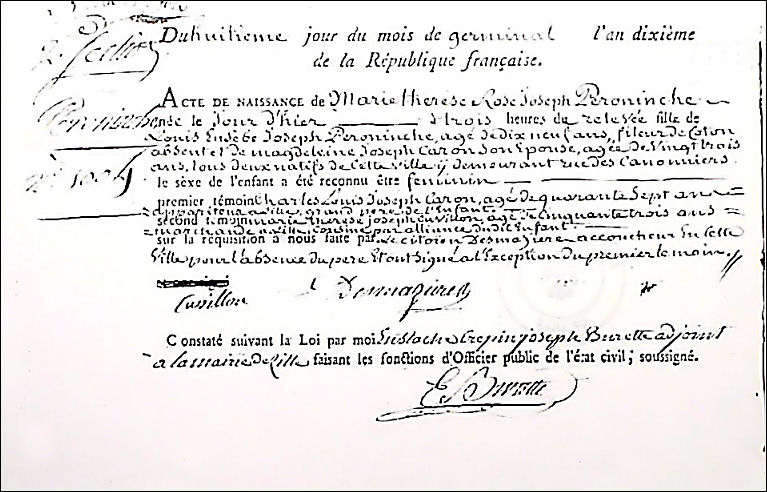 Du huitieme jour du mois de germinal l'an dixième
de la République française.
ACTE DE NAISSANCE de Marie therese Rose Joseph Peroninche
née le Jour D'hier à trois heures de relevée fille de
Louis Eusèbe Joseph Peroninche, agé de dix neuf ans, fileur de Coton
absent et de magdeleine Joseph Caron son Epouse, agée de Vingt trois
ans, tous deux natifs de Cette Ville y demeurant rue des Canonniers.
le sèxe de l'enfant a été reconnu être feminin
premier témoin Charles Louis Joseph Caron, agé de quarante Sept ans
appariteur a Lille, grand pere de l'Enfant
second témoin marie therese joseph Cuvillon, agée de cinquante trois ans
marchande a Lille, cousine par alliance dudit Enfant
sur la réquisition à nous faite par Le citoien Desmazieres accoucheur En Cette
Ville pour l'absence du pere Et ont Signé a l'Exception du premier temoin.
Cuvillon Desmazieres
Constaté suivant la Loi par moi Eustache Crepin joseph Burette adjoint
a la mairie de Lille faisant les fonctions d'Officier public de l'état civil; soussigné.
E. Burette
Peroninche
n° 1004